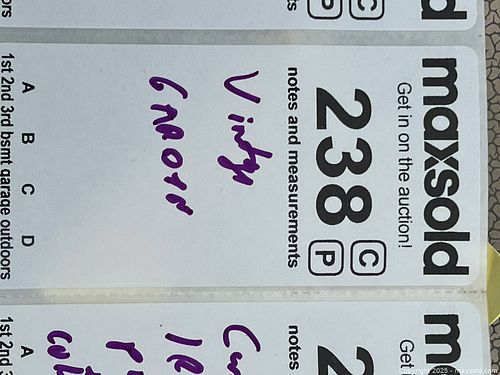 maxsold
Get in on the auction!
238 C P
notes and measurements
Vintage
A B C D
1st 2nd 3rd bsmt garage outdoors
m
Get
2
notes
A
1st 2nd 3
d
C P
ts
ors
Copyright 2025 - maxsold.com